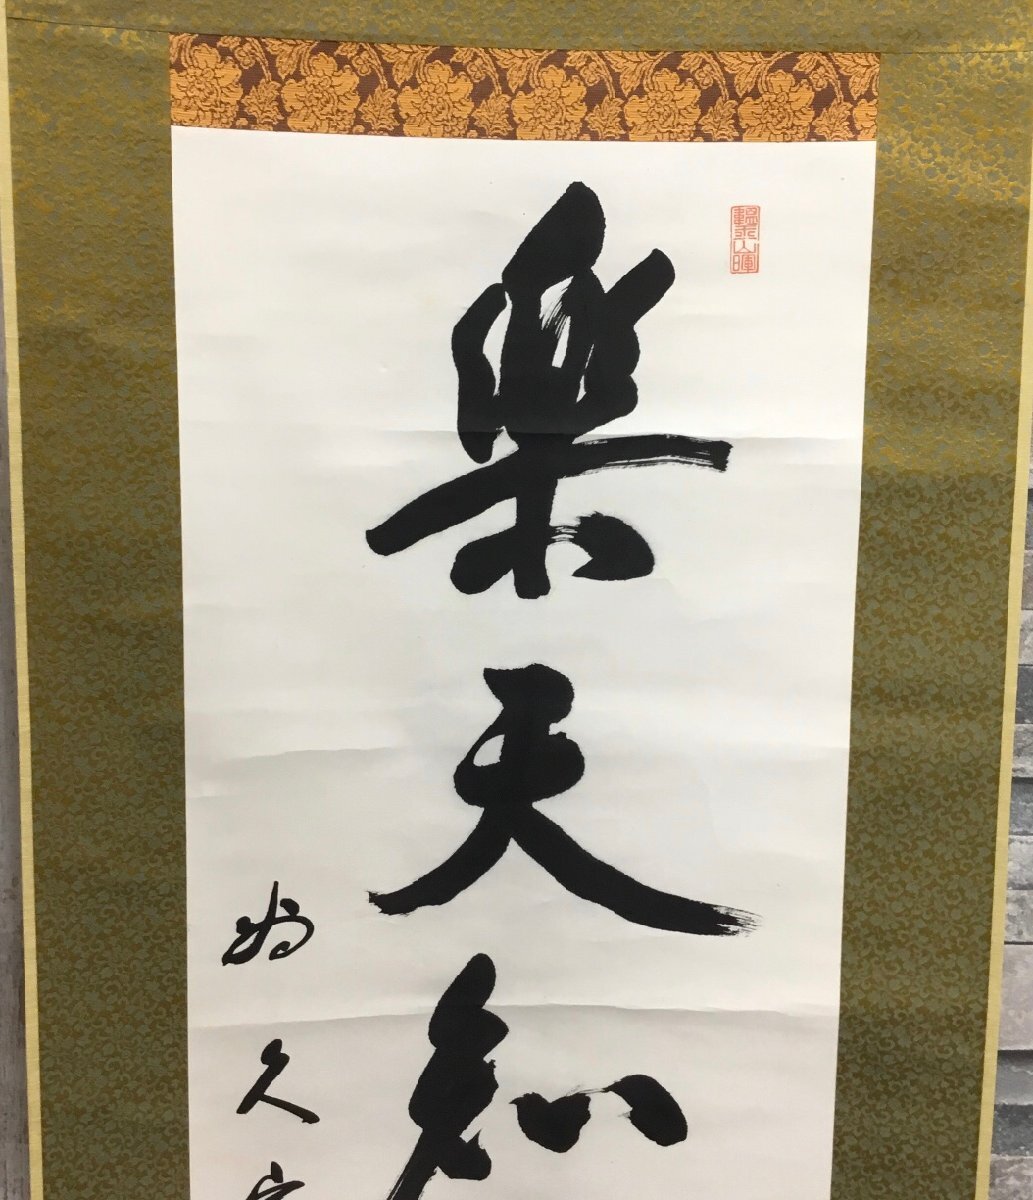 樂天知
為久